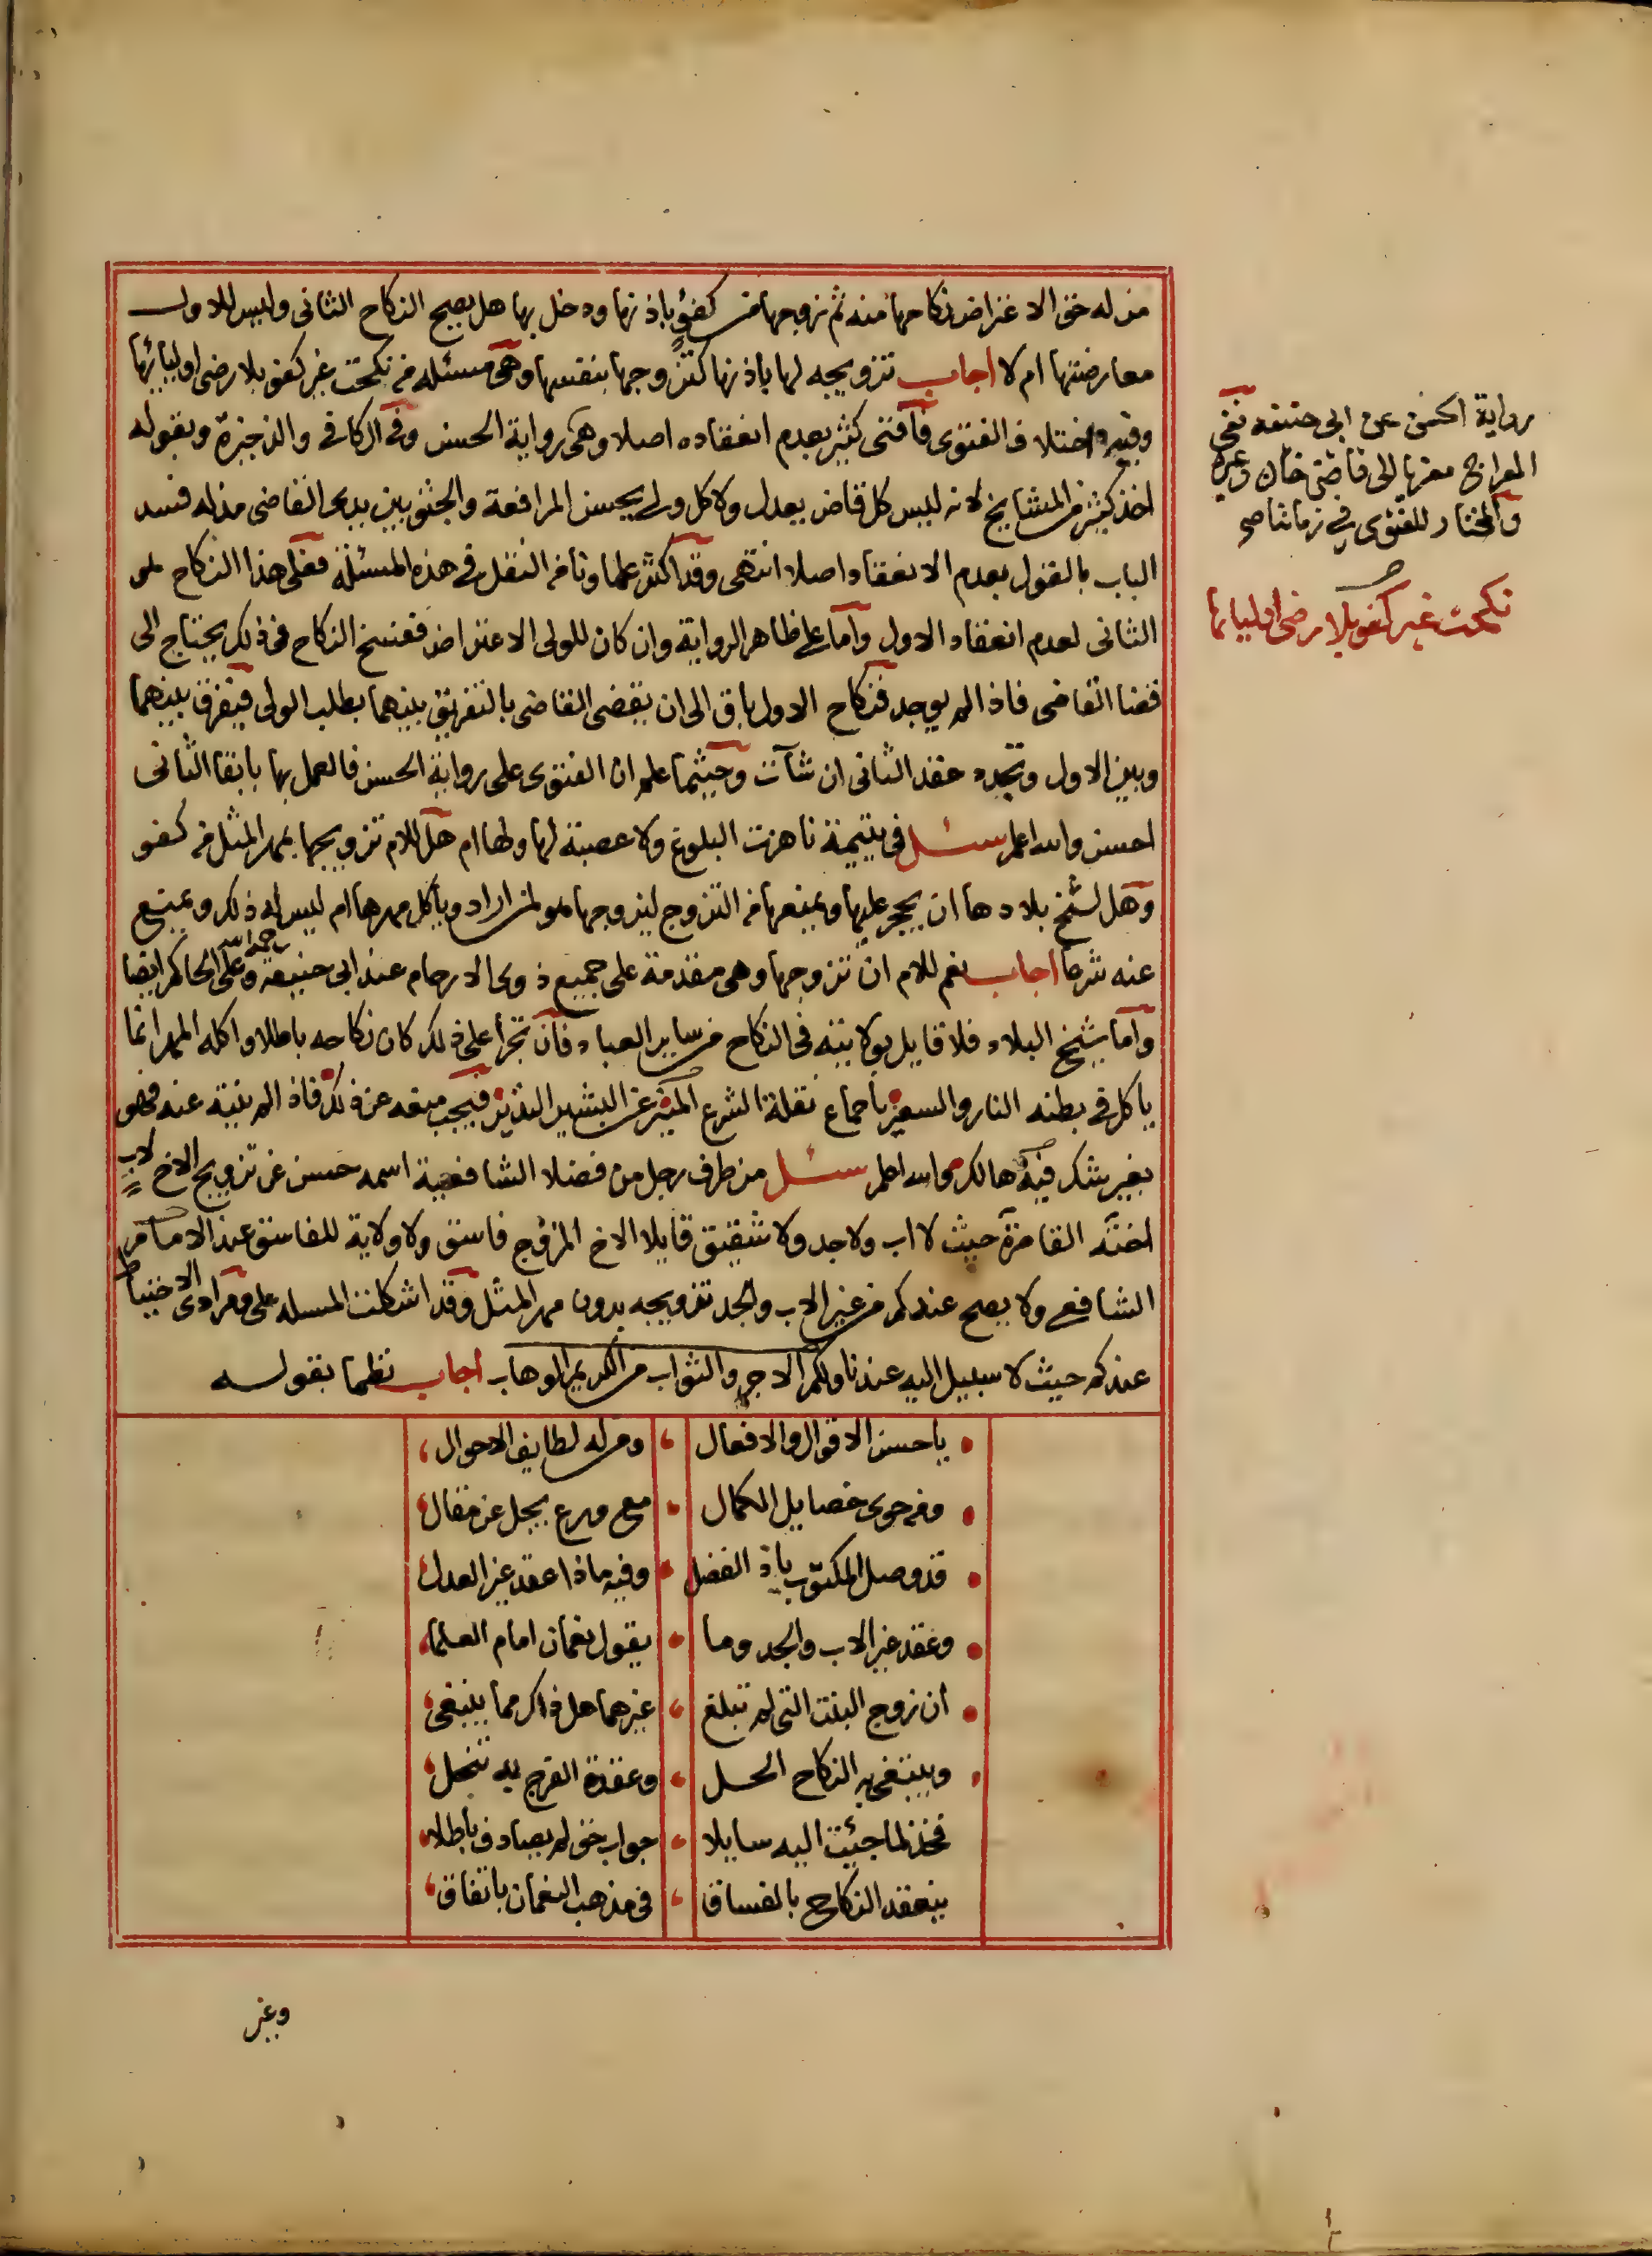 من له حق الاعتراض نكاحها منه ثم زوجها من كفؤ باذنها ودخل بها هل يصح النكاح الثاني وليس للاول
معارضتها ام لا اجاب تزويجه لها باذنها كتزوجها بنفسها وهى مسئلة من نكحت غير كفو بلا رضى اوليائها
وفيه اختلاف الفتوى فافتى كثير بعدم انعقاده اصلا وهى رواية الحسن وفى الكافي والذخيرة وبقوله
اخذ كثير من المشايخ لانه ليس كل قاض يعدل ولا كل ولي يحسن المرافعة والجثو بين يدى القاضى مذله فسد
الباب بالقول بعدم الانعقاد اصلا انتهى وقد اكثر علماونا من النقل في هذه المسئلة فعلى هذا النكاح هو
الثانى لعدم انعقاد الاول واما على ظاهر الرواية وان كان للولى الاعتراض ففسخ النكاح في ذلك يحتاج الى
قضا القاضى فاذا لم يوجد فنكاح الاول باق الى ان يقضى القاضى بالتفريق بينهما بطلب الولى فيفرق بينهما
وبين الاول وتجدد عقد الثانى ان شآت وحيثما علم ان الفتوى على رواية الحسن فالعمل بها بابقا الثانى
احسن والله اعلم سئل في يتيمة ناهزت البلوغ ولا عصبة لها ولها ام هل للام تزويجها بمهر المثل من كفو
وهل لشيخ بلادها ان يحجر عليها ويمنعها من التزوج ليزوجها هو لمن اراد وياكل مهرها ام ليس له ذلك ويمنع
عنه شرعا اجاب نعم للام ان تزوجها وهى مقدمة على جميع ذوى الارحام عند ابى حنيفة رحمه الله وعلى الحاكم ايضا
واما شيخ البلاد فلا قايل بولايته في النكاح من ساير العباد فان تجرأ على ذلك كان نكاحه باطلا واكله المهر انما
ياكل في بطنه النار والسعير باجماع نقلة الشرع المنير عن البشير النذير فيجب منعه عن ذلك فاذا لم ينته عنه فهو
بغير شك فيه هالك والله اعلم سئل من طرف رجل من فضلا الشافعية اسمه حسن عن تزويج الاخ لاب
اخته القاصرة حيث لا اب ولا جد ولا شقيق قايلا الاخ المزوج فاسق ولا ولاية للفاسق عند الامام
الشافعي ولا يصح عندكم من غير الاب والجد تزويجه بدون مهر المثل وقد اشكلت المسله على ومرادى الاحتياط
عندكم حيث لا سبيل اليه عندنا ولكم الاجر والثواب من الكريم الوهاب اجاب نظما بقوله
ياحسن الاقوال والافعال ومن له لطايف الاحوال
ومن حوى خصايل الكمال مع ورع يجل عن مقال
قد وصل المكتوب ياذ الفضل وفيه ماذا عقد غير العدل
وعقد غير الاب والجد وما يقول نعمان امام العلما
ان زوج البنت التى لم تبلغ غيرهما هل ذاك مما ينبغى
وينبغى به النكاح الحل وعقدة الفرج به تنحل
فخذ لما جئت اليه سايلا جواب حق لم يصادف باطلا
ينعقد النكاح بالفساق في مذهب النعمان باتفاق
وغير
رواية الحسن عن ابى حنيفه ففى
المعراج معزيا الى قاضى خان وغيره
والمختار للفتوى في زماننا
نكحت غير كفو بلا رضى اوليائها